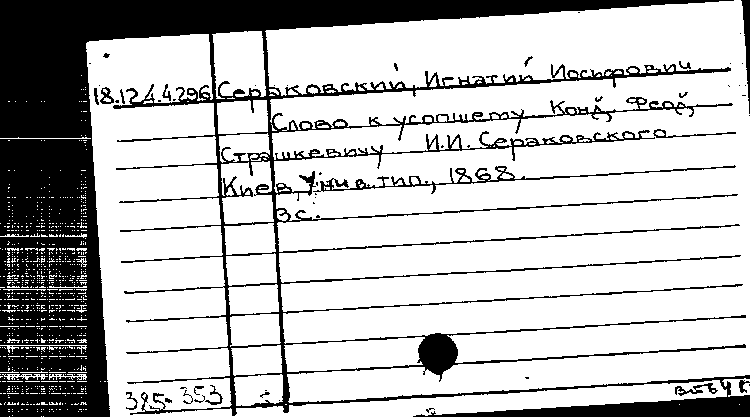 18.124.4.296 Сераковский, Игнатий Иосифович.
Слово к усопшему Конд. Феод.
Страшкевичу И.И. Сераковского
Киев, Унив. тип., 1868.
3с.
385-353